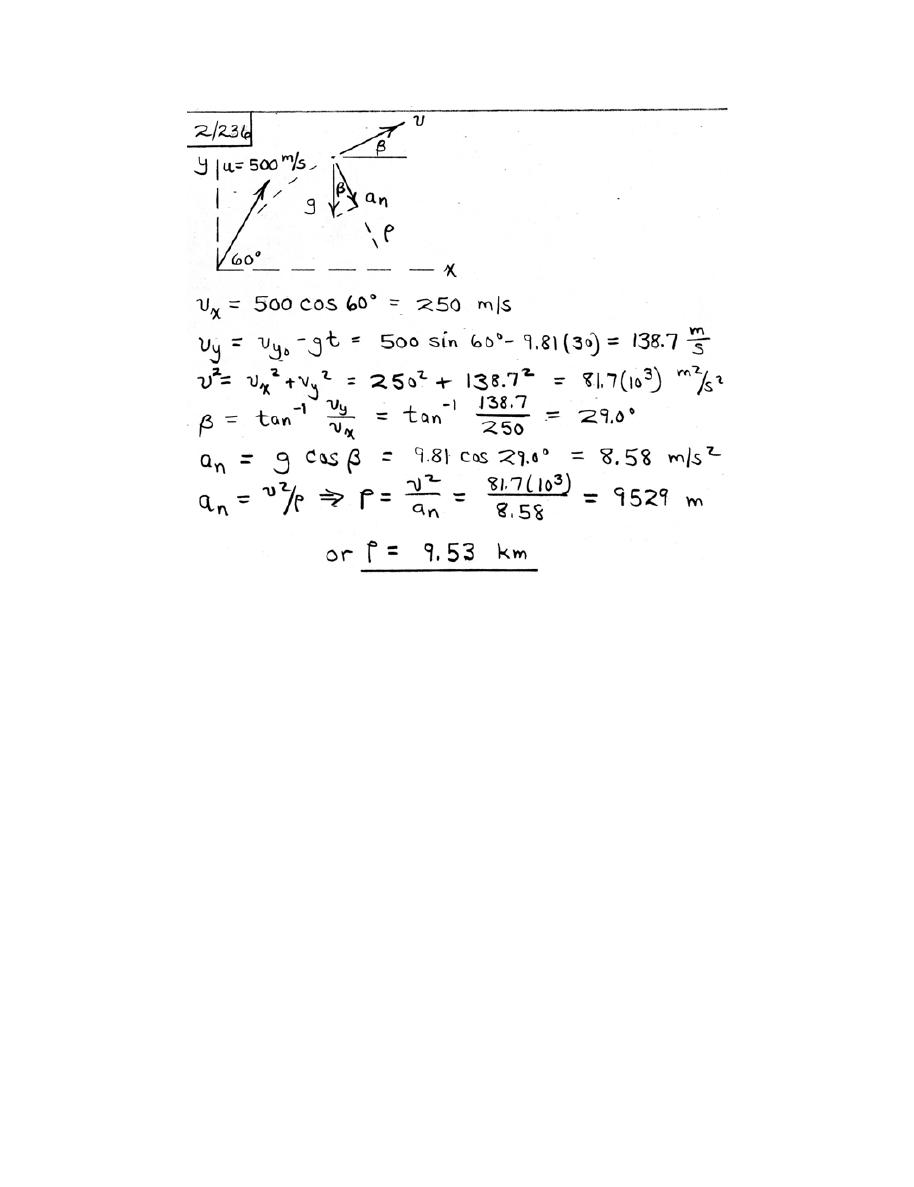 2/236
v
β
y u = 500 m/s
β
g
an
ρ
60°
x
vx = 500 cos 60° = 250 m/s
vy = vy₀ - gt = 500 sin 60° - 9.81(30) = 138.7 m/s
v² = vx² + vy² = 250² + 138.7² = 81.7(10³) m²/s²
β = tan⁻¹ vy/vx = tan⁻¹ 138.7/250 = 29.0°
an = g cos β = 9.81 cos 29.0° = 8.58 m/s²
an = v²/ρ ⇒ ρ = v²/an = 81.7(10³)/8.58 = 9529 m
or ρ = 9.53 km